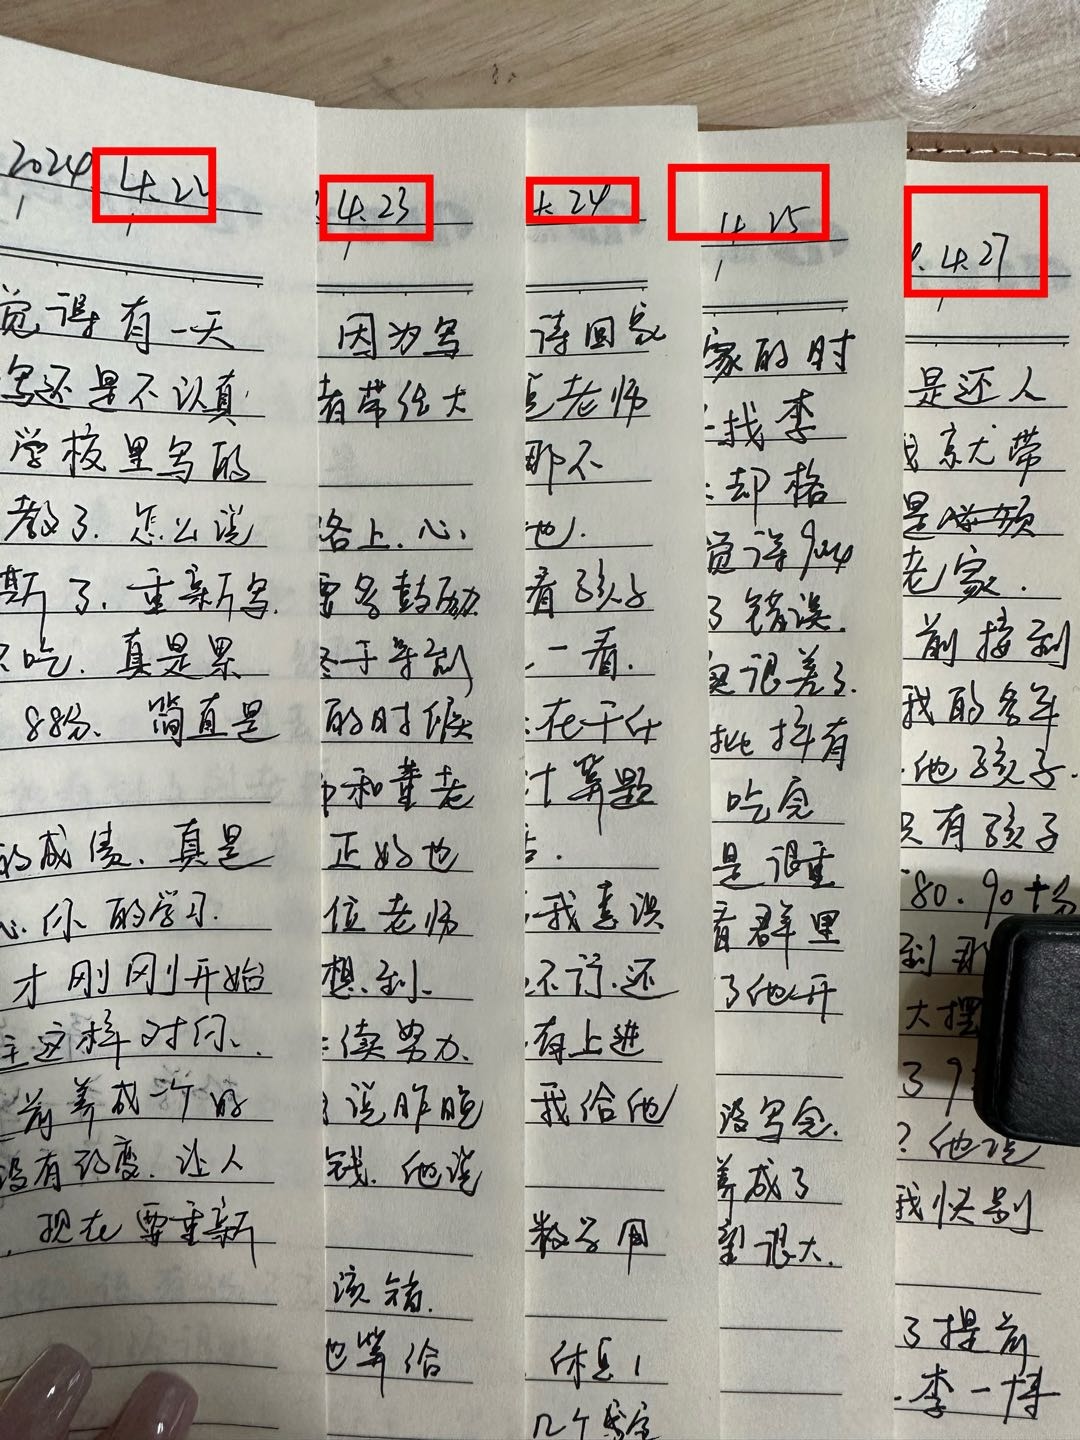 2024. 4.22
觉得有一天
写还是不认真
学校里写的
教了.怎么说
斯了.重新写.
吃.真是累
88分.简直是
的成绩.真是
心你的学习.
才刚刚开始
这样对你.
前养成一个的
没有改变.让人
现在要重新
4.23
因为写
者带给大
路上.心
要多鼓励
终于等到
的时候
和董老
正好也
位老师
想到.
续努力.
说昨晚
钱.他说
该错.
也算给
4.24
诗回家
老师
那不
他.
看孩子
一看.
在干什
计算题
我喜误
不订.还
有上进
我给他
数学用
休息1
几个
4.25
家的时
找李
却格
觉得904
了错误.
很差了.
批择有
吃完
是很重
看群里
了他开
没写完.
养成了
很大.
4.27
是还人
我就带
是
老家.
前接到
我的多年
他孩子.
只有孩子
80.90十分
到那
大摆
了9
?他说
我快别
了提前
李一博